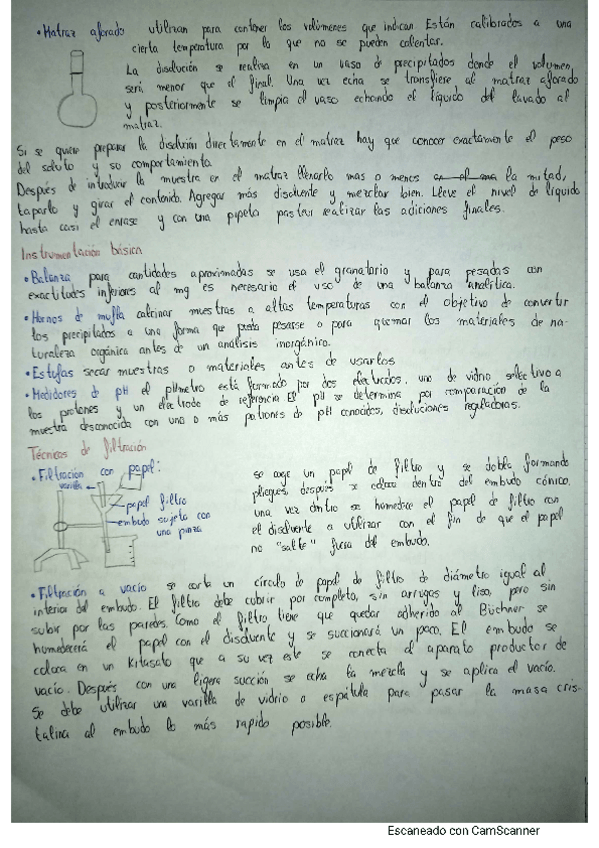 • Matraz aforado utilizan para contener los volúmenes que indican. Están calibrados a una
cierta temperatura por lo que no se pueden calentar.
La disolución se realiza en un vaso de precipitados donde el volumen,
será menor que el final. Una vez echa se transfiere al matraz aforado
y posteriormente se limpia el vaso echando el líquido del lavado al
matraz.
Si se quiere preparar la disolución directamente en el matraz hay que conocer exactamente el peso
del soluto y su comportamiento.
Después de introducir la muestra en el matraz llenarlo mas o menos la mitad,
taparlo y girar el contenido. Agregar más disolvente y mezclar bien. Lleve el nivel de líquido
hasta casi el enrase y con una pipeta pasteur realizar las adiciones finales.
Instrumentación básica
• Balanza para cantidades aproximadas se usa el granatario y para pesadas con
exactitudes inferiores al mg es necesario el uso de una balanza analítica.
• Hornos de mufla calcinar muestras a altas temperaturas con el objetivo de convertir
los precipitados a una forma que pueda pesarse o para quemar los materiales de na-
turaleza orgánica antes de un análisis inorgánico.
• Estufas secar muestras o materiales antes de usarlos
• Medidores de pH el pHmetro está formado por dos electrodos, uno de vidrio selectivo a
los protones y un electrodo de referencia El pH se determina por comparación de la
muestra desconocida con una o más patrones de pH conocidos, disoluciones reguladoras.
Técnicas de filtración
• Filtración con papel:
varilla
papel filtro
embudo sujeta con
una pinza
se coge un papel de filtro y se dobla formando
pliegues, después se coloca dentro del embudo cónico.
una vez dentro se humedece el papel de filtro con
el disolvente a utilizar con el fin de que el papel
no "salte" fuera del embudo.
• Filtración a vacío se corta un círculo de papel de filtro de diámetro igual al
interior del embudo. El filtro debe cubrir por completo, sin arrugas y liso, pero sin
subir por las paredes. Como el filtro tiene que quedar adherido al Büchner se
humedecerá el papel con el disolvente y se succionará un poco. El embudo se
coloca en un kitasato que a su vez este se conecta al aparato productor de
vacío. Después con una ligera succión se echa la mezcla y se aplica el vacío.
Se debe utilizar una varilla de vidrio o espátula para pasar la masa cris-
talina al embudo lo más rapido posible.
Escaneado con CamScanner